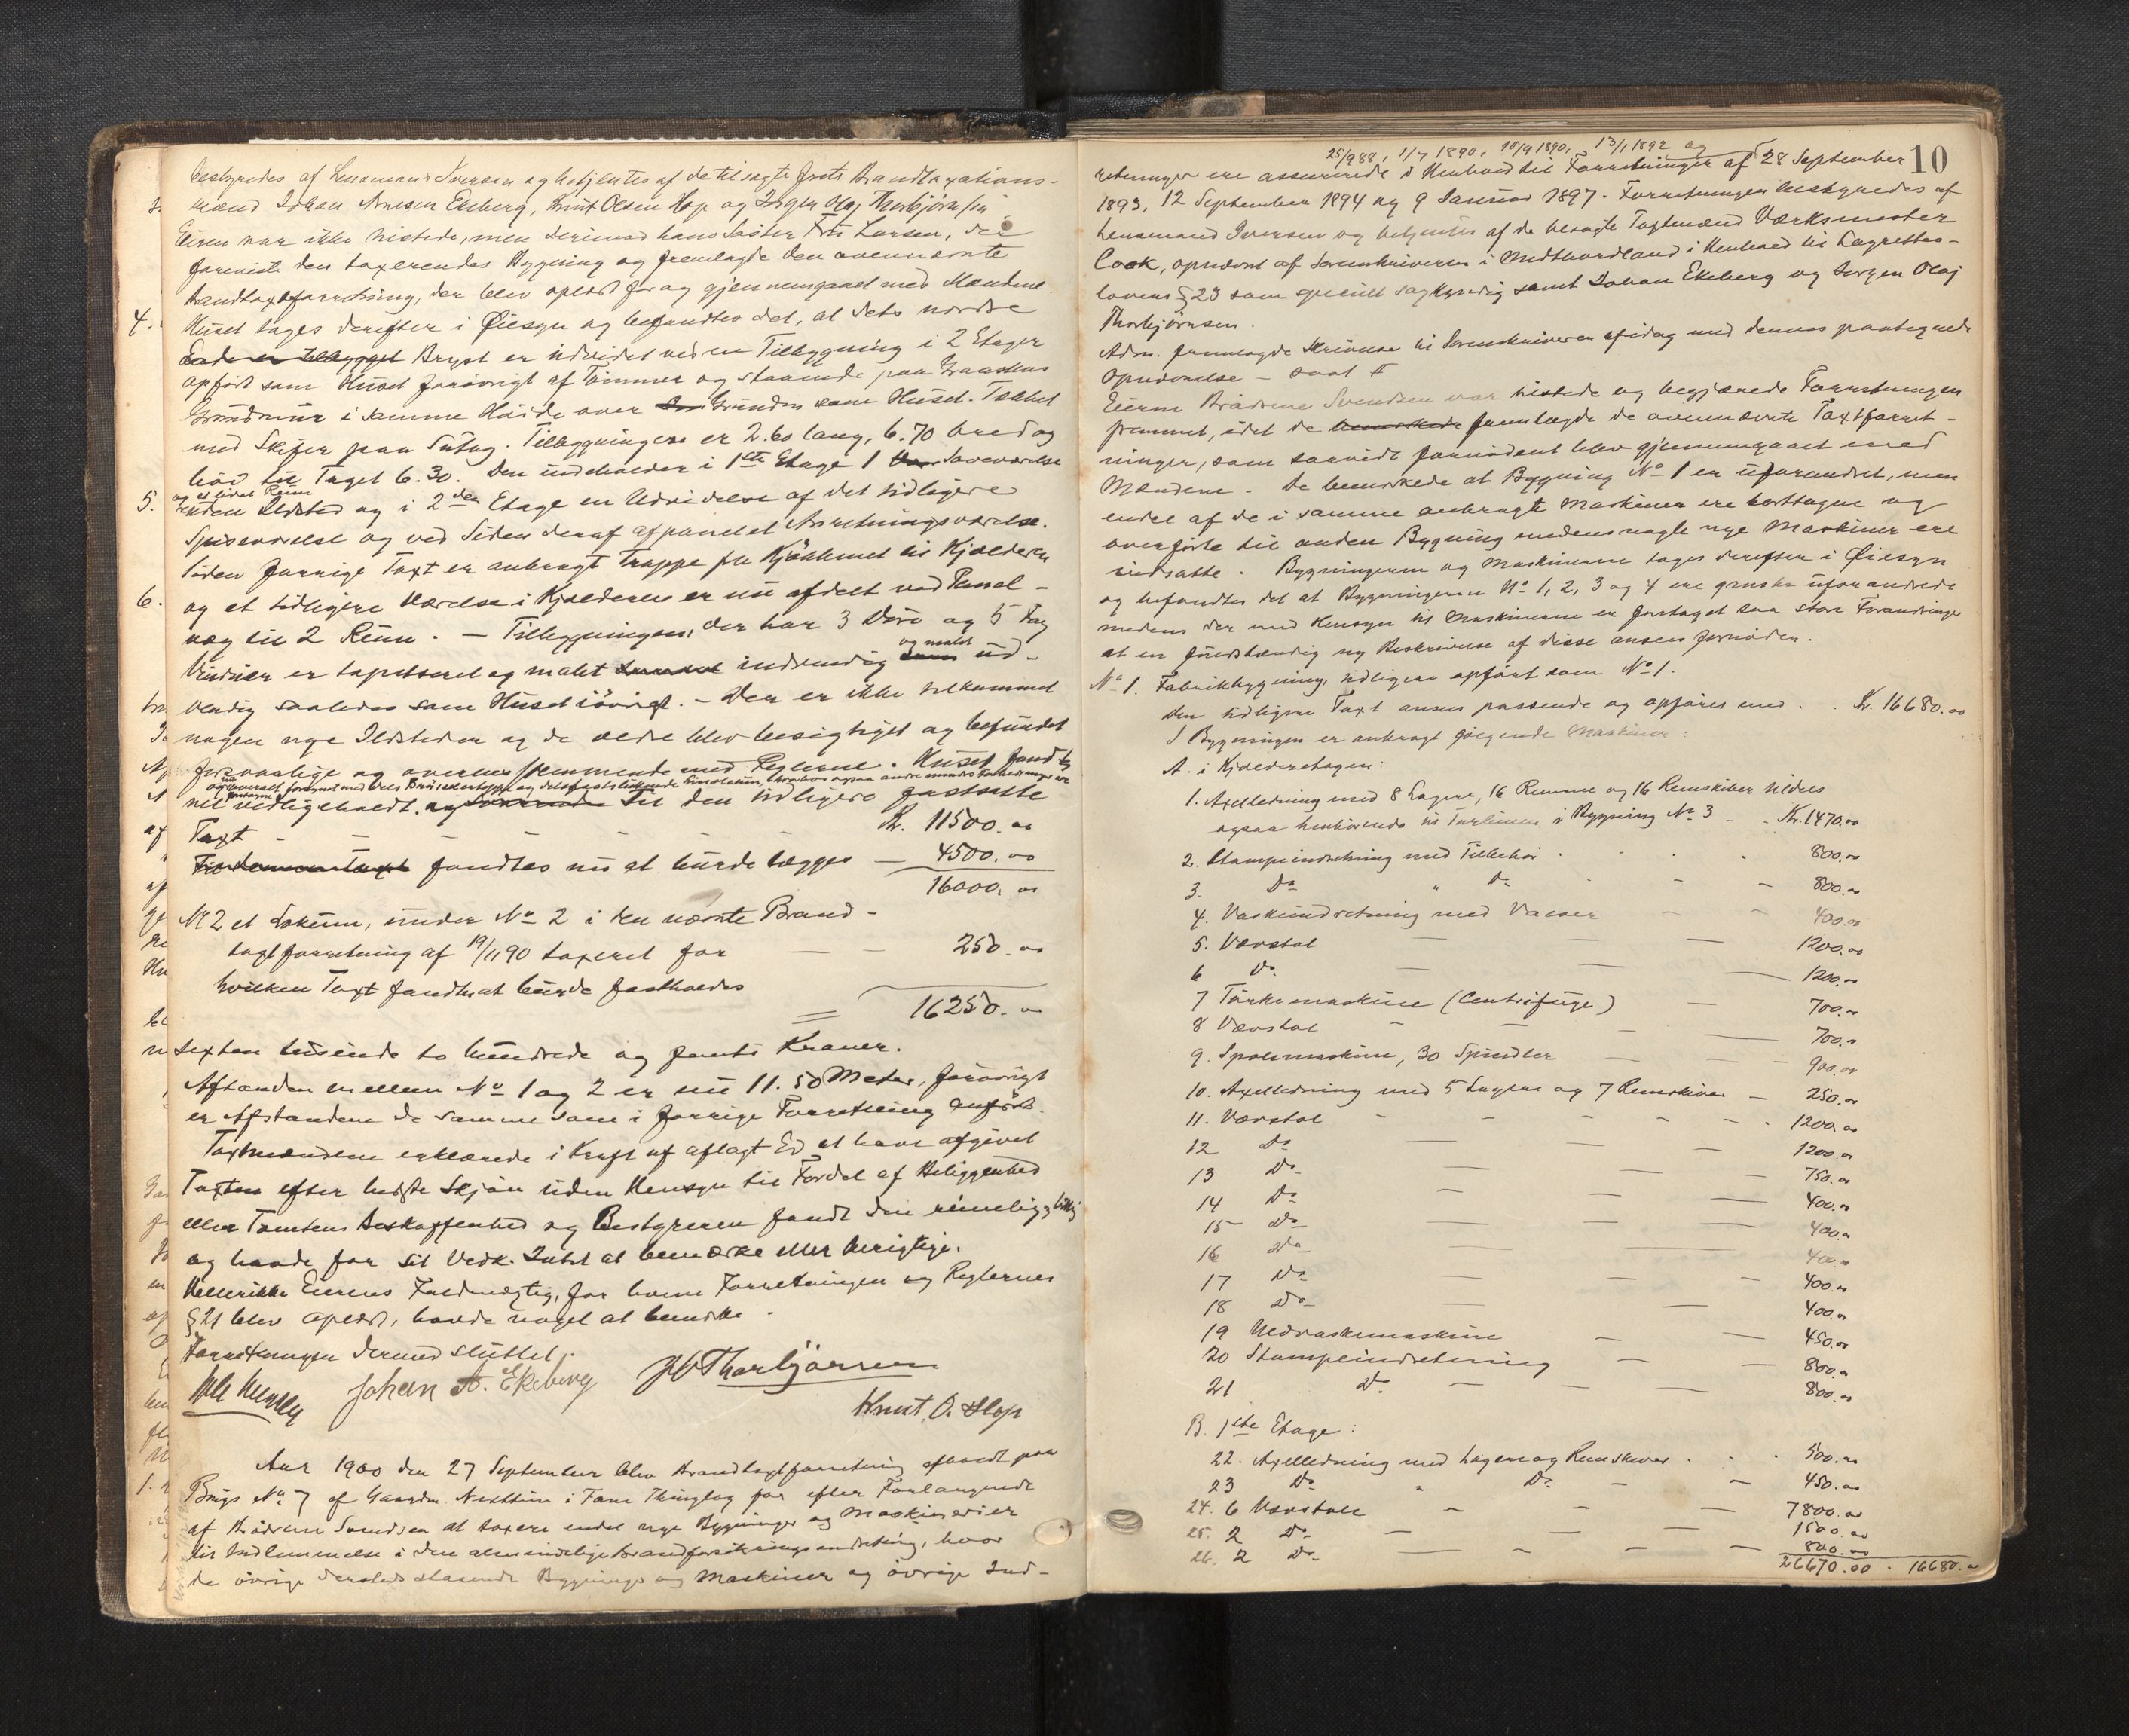 bestyredes af Lensmand Iversen og betjentes af de tilsagte faste Brandtaxations-
mænd Johan Arnesen Ekeberg, Knut Olsen Hop og Jørgen Olaj Thorbjørnsen.
Eieren var ikke tilstede, men derimod hans Søster Frk Larsen, der
foreviste den taxerendes Bygning og fremlagde den ovennævnte
brandtaxtforretning, der blev oplæst for og gjennemgaaet med Mændene.
4.
Huset toges derefter i Øiesyn og befandtes det, at dets nordre
Ende er tilbygget Bryst er udvidet ved en Tilbygning i 2 Etager
opført som Huset forøvrigt af Tømmer og staaende paa Graastens
Grundmur i samme Høide over Grunden som Huset. Tækket
med Skifer paa Sutag. Tilbygningen er 2.60 lang, 6.70 bred og
høi til Taget 6.30. Den indeholder i 1ste Etage 1 Soveværelse
og et lidet Rum
5.
uden Ildsted og i 2den Etage en Udvidelse af det tidligere
Spiseværelse og ved Siden deraf afpanelet Anretningsværelse.
Siden forrige Taxt er anbragt Trappe fra Kjøkkenet til Kjælderen
6.
og et tidligere Værelse i Kjælderen er nu afdelt ved Panel-
væg til 2 Rum. — Tilbygningen, der har 3 Døre og 5 Fag
Vinduer er tapetseret og malet indvendig og malet ud-
vendig saaledes som Huset iøvrigt. — Der er ikke tilkommet
nogen nye Ildsteder og de ældre blev besigtiget og befundet
forsvarlige og overensstemmende med Reglerne. Huset fandtes
vel vedligeholdt. og Til den tidligere fastsatte
Taxt — — — — — Kr. 11500.00
fandtes nu at burde lægges — 4500.00
16000.00
No 2 et Lokum, under No 2 i den nævnte Brand-
taxtforretning af 19/11 90 taxeret for — — 250.00
hvilken Taxt fandtes at burde fastholdes
16250.00
Sexten tusinde to hundrede og femti Kroner.
Afstanden mellem No 1 og 2 er nu 11.50 Meter, forøvrigt
er Afstandene de samme som i forrige Forretning anført.
Taxtmændene erklærede i Kraft af aflagt Ed at have afgivet
Taxten efter bedste Skjøn uden Hensyn til Fordel af Beliggenhed
eller Tomtens Beskaffenhed og Bestyreren fandt den rimelig og billig
og havde for sit Vedk. Intet at bemærke eller berigtige.
Heller ikke Eierens Fuldmægtig, for hvem Forretningen og Reglernes
§ 21 blev oplæst, havde noget at bemærke.
Forretningen dermed sluttet.
Johan A. Ekeberg JO Thorbjörnsen
Knut. O. Hop
Aar 1900 den 27 September blev Brandtaxtforretning afholdt paa
Brugs No 7 af Gaarden Nesttun i Fane Thinglag for efter Forlangende
af Brødrene Svendsen at taxere endel nye Bygninger og Maskinerier
til Indlemmelse i den almindelige Brandforsikringsindretning, hvor
de øvrige dersteds staaende Bygninger og Maskiner og øvrige Ind-
10
25/9 88, 1/7 1890, 10/9 1890, 13/1 1892 og
retninger ere assurerede i Henhold til Forretninger af 28 September
1893, 12 September 1894 og 9 Januar 1897. Forretningen bestyredes af
Lensmand Iversen og betjentes af de besagte Taxtmænd Værksmester
Cook, opnævnt af Sorenskriveren i Midthordland i Henhold til Lagrettes-
lovens § 23 som specielt sagkyndig samt Johan Ekeberg og Jørgen Olaj
Thorbjørnsen.
Adm. fremlagde Skrivelse til Sorenskriveren af idag med dennes paategnede
Opnævnelse — saal.
Eierne Brødrene Svendsen var tilstede og begjærede Forretningen
fremmet, idet de fremlagde de ovennævnte Taxtforret-
ninger, som saavidt fornødent blev gjennemgaaet med
Mændene. De bemærkede at Bygning No 1 er uforandret, men
endel af de i samme anbragte Maskiner ere borttagne og
overførte til anden Bygning medens nogle nye Maskiner ere
indsatte. Bygningerne og Maskinerne toges derefter i Øiesyn
og befandtes det at Bygningerne No 1, 2, 3 og 4 ere ganske uforandrede
medens der med Hensyn til Maskinerne er foretaget saa store Forandringer
at en fuldstændig ny Beskrivelse af disse ansees fornøden.
No 1. Fabrikbygning, tidligere opført som No 1.
Den tidligere Taxt ansees passende og opføres med . . Kr. 16680.00
I Bygningen er anbragt følgende Maskiner:
A. i Kjælderetagen:
1. Axelledning med 8 Lagere, 16 Remme og 16 Remskiver tildels
ogsaa henhørende til Turbinen i Bygning No 3 - - Kr. 1470.00
2. Stampeindretning med Tilbehør . . . 800.00
3. Do " Do - - 800.00
4. Vaskeindretning med Valser — — 400.00
5. Vævstol — — — 1200.00
6 Do — — — 1200.00
7 Tørkemaskine (Centrifuge) — 700.00
8 Vævstol — — — 700.00
9. Spolemaskine, 30 Spindler — — — 900.00
10. Axelledning med 5 Lagere og 7 Remskiver — 250.00
11. Vævstol - - - - 1200.00
12 Do — — — 1200.00
13 Do — — — 750.00
14 Do — — — 400.00
15 Do — — — 400.00
16 Do — — — 400.00
17 Do — — — 400.00
18 Do — — 400.00
19 Uldvaskemaskine — — 450.00
20 Stampeindretning — — 800.00
21 Do — — — 800.00
B. 1ste Etage:
22. Axelledning med Lagere og Remskiver . . . 500.00
23 Do " Do — — 450.00
24. 6 Vævstole — — — 7800.00
25. 2 Do — — — 1500.00
26. 2 Do — — — 800.00
26670.00 . 16680.00